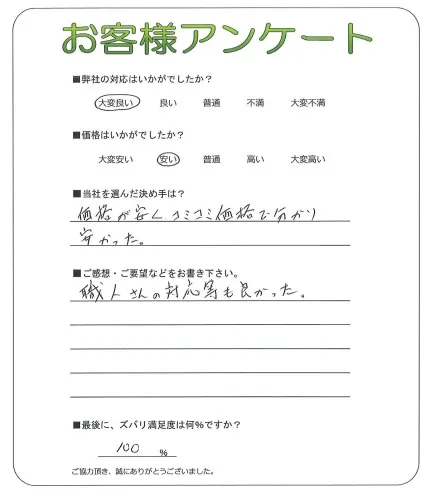 お客様アンケート
■弊社の対応はいかがでしたか？
大変良い 良い 普通 不満 大変不満
■価格はいかがでしたか？
大変安い 安い 普通 高い 大変高い
■当社を選んだ決め手は？
価格が安く、コミコミ価格で分かり
安かった。
■ご感想・ご要望などをお書き下さい。
職人さんの対応等も良かった。
■最後に、ズバリ満足度は何％ですか？
100 ％
ご協力頂き、誠にありがとうございました。